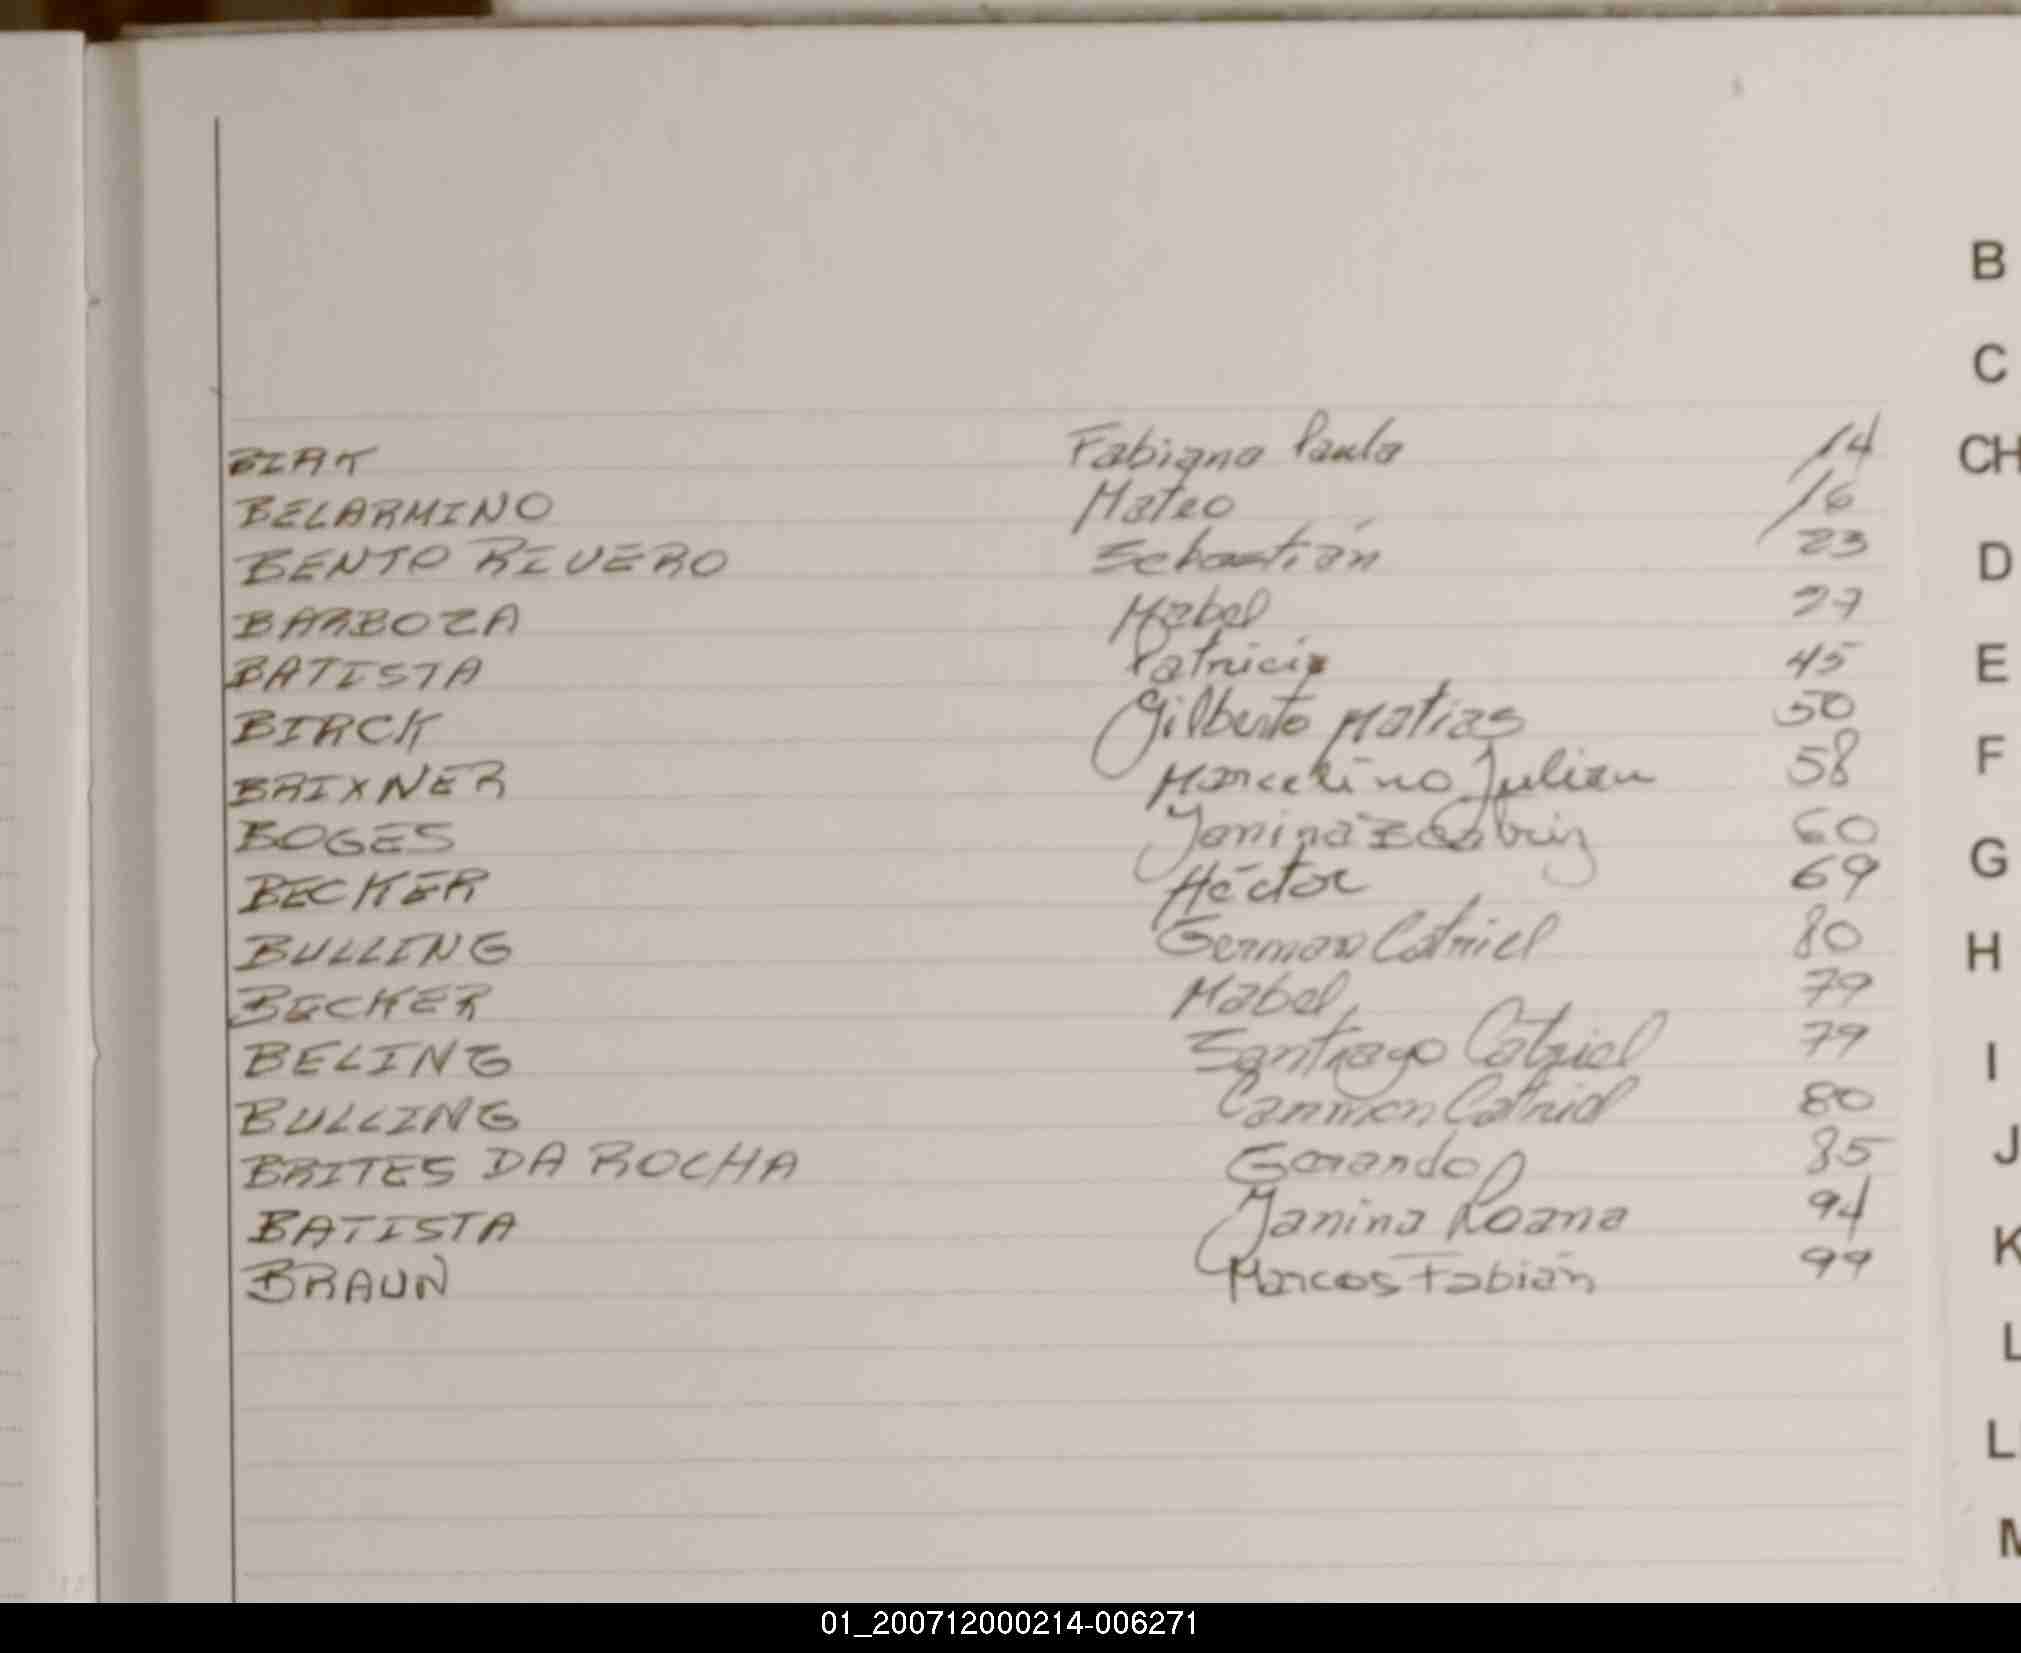 BIAK Fabiana Paula 14
BELARMINO Mateo 16
BENTO RIVERO Sebastián 23
BARBOZA Mabel 27
BATISTA Patricia 45
BIRCK Gilberto Matias 50
BRIXNER Marcelino Julian 58
BOGES Yanina Beatriz 60
BECKER Héctor 69
BULLING German Catriel 80
BECKER Mabel 79
BELING Santiago Catriel 79
BULLING Carmen Catriel 80
BRITES DA ROCHA Gerardo 85
BATISTA Yanina Roana 94
BRAUN Marcos Fabián 99
B
C
CH
D
E
F
G
H
I
J
K
L
LL
M
01_200712000214-006271